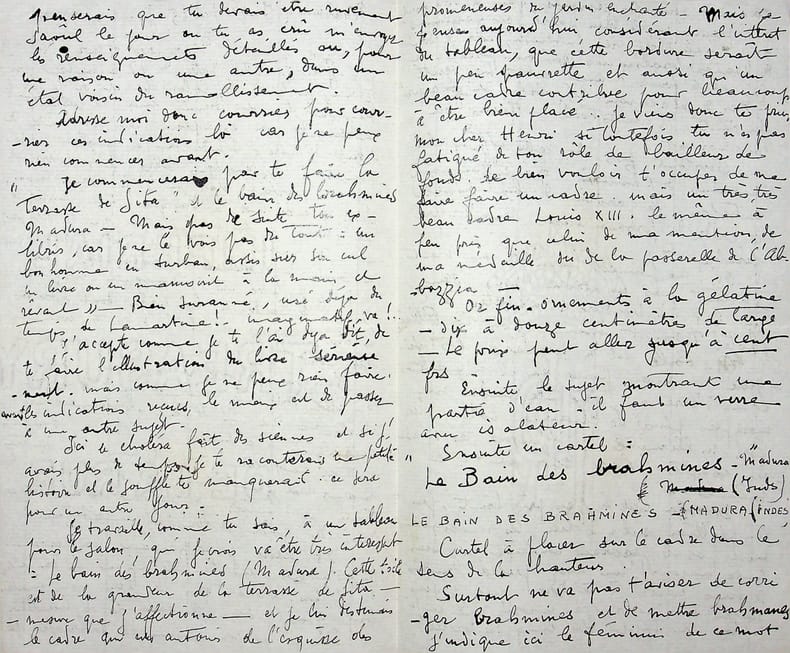 penserais que tu devais être rudement
saoul le jour où tu as crû m'envoyer
les renseignements détaillés ou, pour
une raison ou une autre, dans un
état voisin du ramollissement.
Adresse moi donc courrier pour cour-
-rier ces indications là car je ne peux
rien commencer avant.
" Je commencerai par te faire la
Terrasse de Sita" et le bain des brahmines
Madura - Mais pas de suite ton ex-
libris, car je ne le vois pas du tout : un
bonhomme en turban, assis sur son cul
un livre ou un manuscrit à la main et
rêvant" - Bien suranné, usé déjà du
temps de Lamartine! va!..
J'accepte comme je te l'ai déja dit, de
te faire l'illustration du livre sérieuse
-ment. mais comme je ne peux rien faire
avant les indications reçues, le mieux est de passer
à un autre sujet.
Ici le choléra fait des siennes et si j'
avais plus de temps, je te raconterais une petite
histoire et le souffle te manquerait. ce sera
pour un autre jour.
Je travaille, comme tu sais, à un tableau
pour le salon, qui je crois va être très intéressant
= Le bain des brahmines (Madura). Cette toile
est de la grandeur de la terrasse de Sita -
- mesure que j'affectionne - et je lui destinais
le cadre qui de l'esquisse des
promeneuses du jardin enchanté - Mais je
pense aujourd'hui, considérant l'intérêt
du tableau, que cette bordure serait
un peu pauvrette et aussi qu'un
beau cadre contribue pour beaucoup
à être bien placé.. je viens donc te prier
mon cher Henri si toutefois tu n'es pas
fatigué de ton rôle de bailleur de
fonds de bien vouloir t'occuper de me
faire faire un cadre. mais un très, très
beau cadre Louis XIII. le même à
peu près que celui de ma mention, de
ma médaille ou de la passerelle de l'Ab-
-bazzia
Or fin. ornements à la gélatine
- dix à douze centimètres de large
- Le prix peut aller jusqu'à cent
frs
Ensuite le sujet montrant une
partie d'eau - il faut un verre
avec isolateur.
Ensuite un cartel :
" Le Bain des brahmines - "Madura
(Indes)
LE BAIN DES BRAHMINES - (MADURA (INDES
Cartel à placer sur le cadre dans le
sens de la hauteur.
Surtout ne va pas t'aviser de corri
-ger Brahmines et de mettre brahmanes
j'indique ici le féminin de ce mot